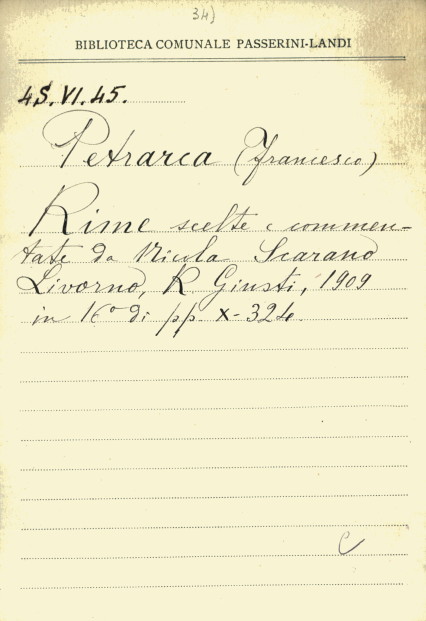 34)
BIBLIOTECA COMUNALE PASSERINI-LANDI
4S.VI.45.
Petrarca (Francesco)
Rime scelte e commen-
tate da Nicola Scarano
Livorno, R. Giusti, 1909
in 16º di pp. X-324.
C